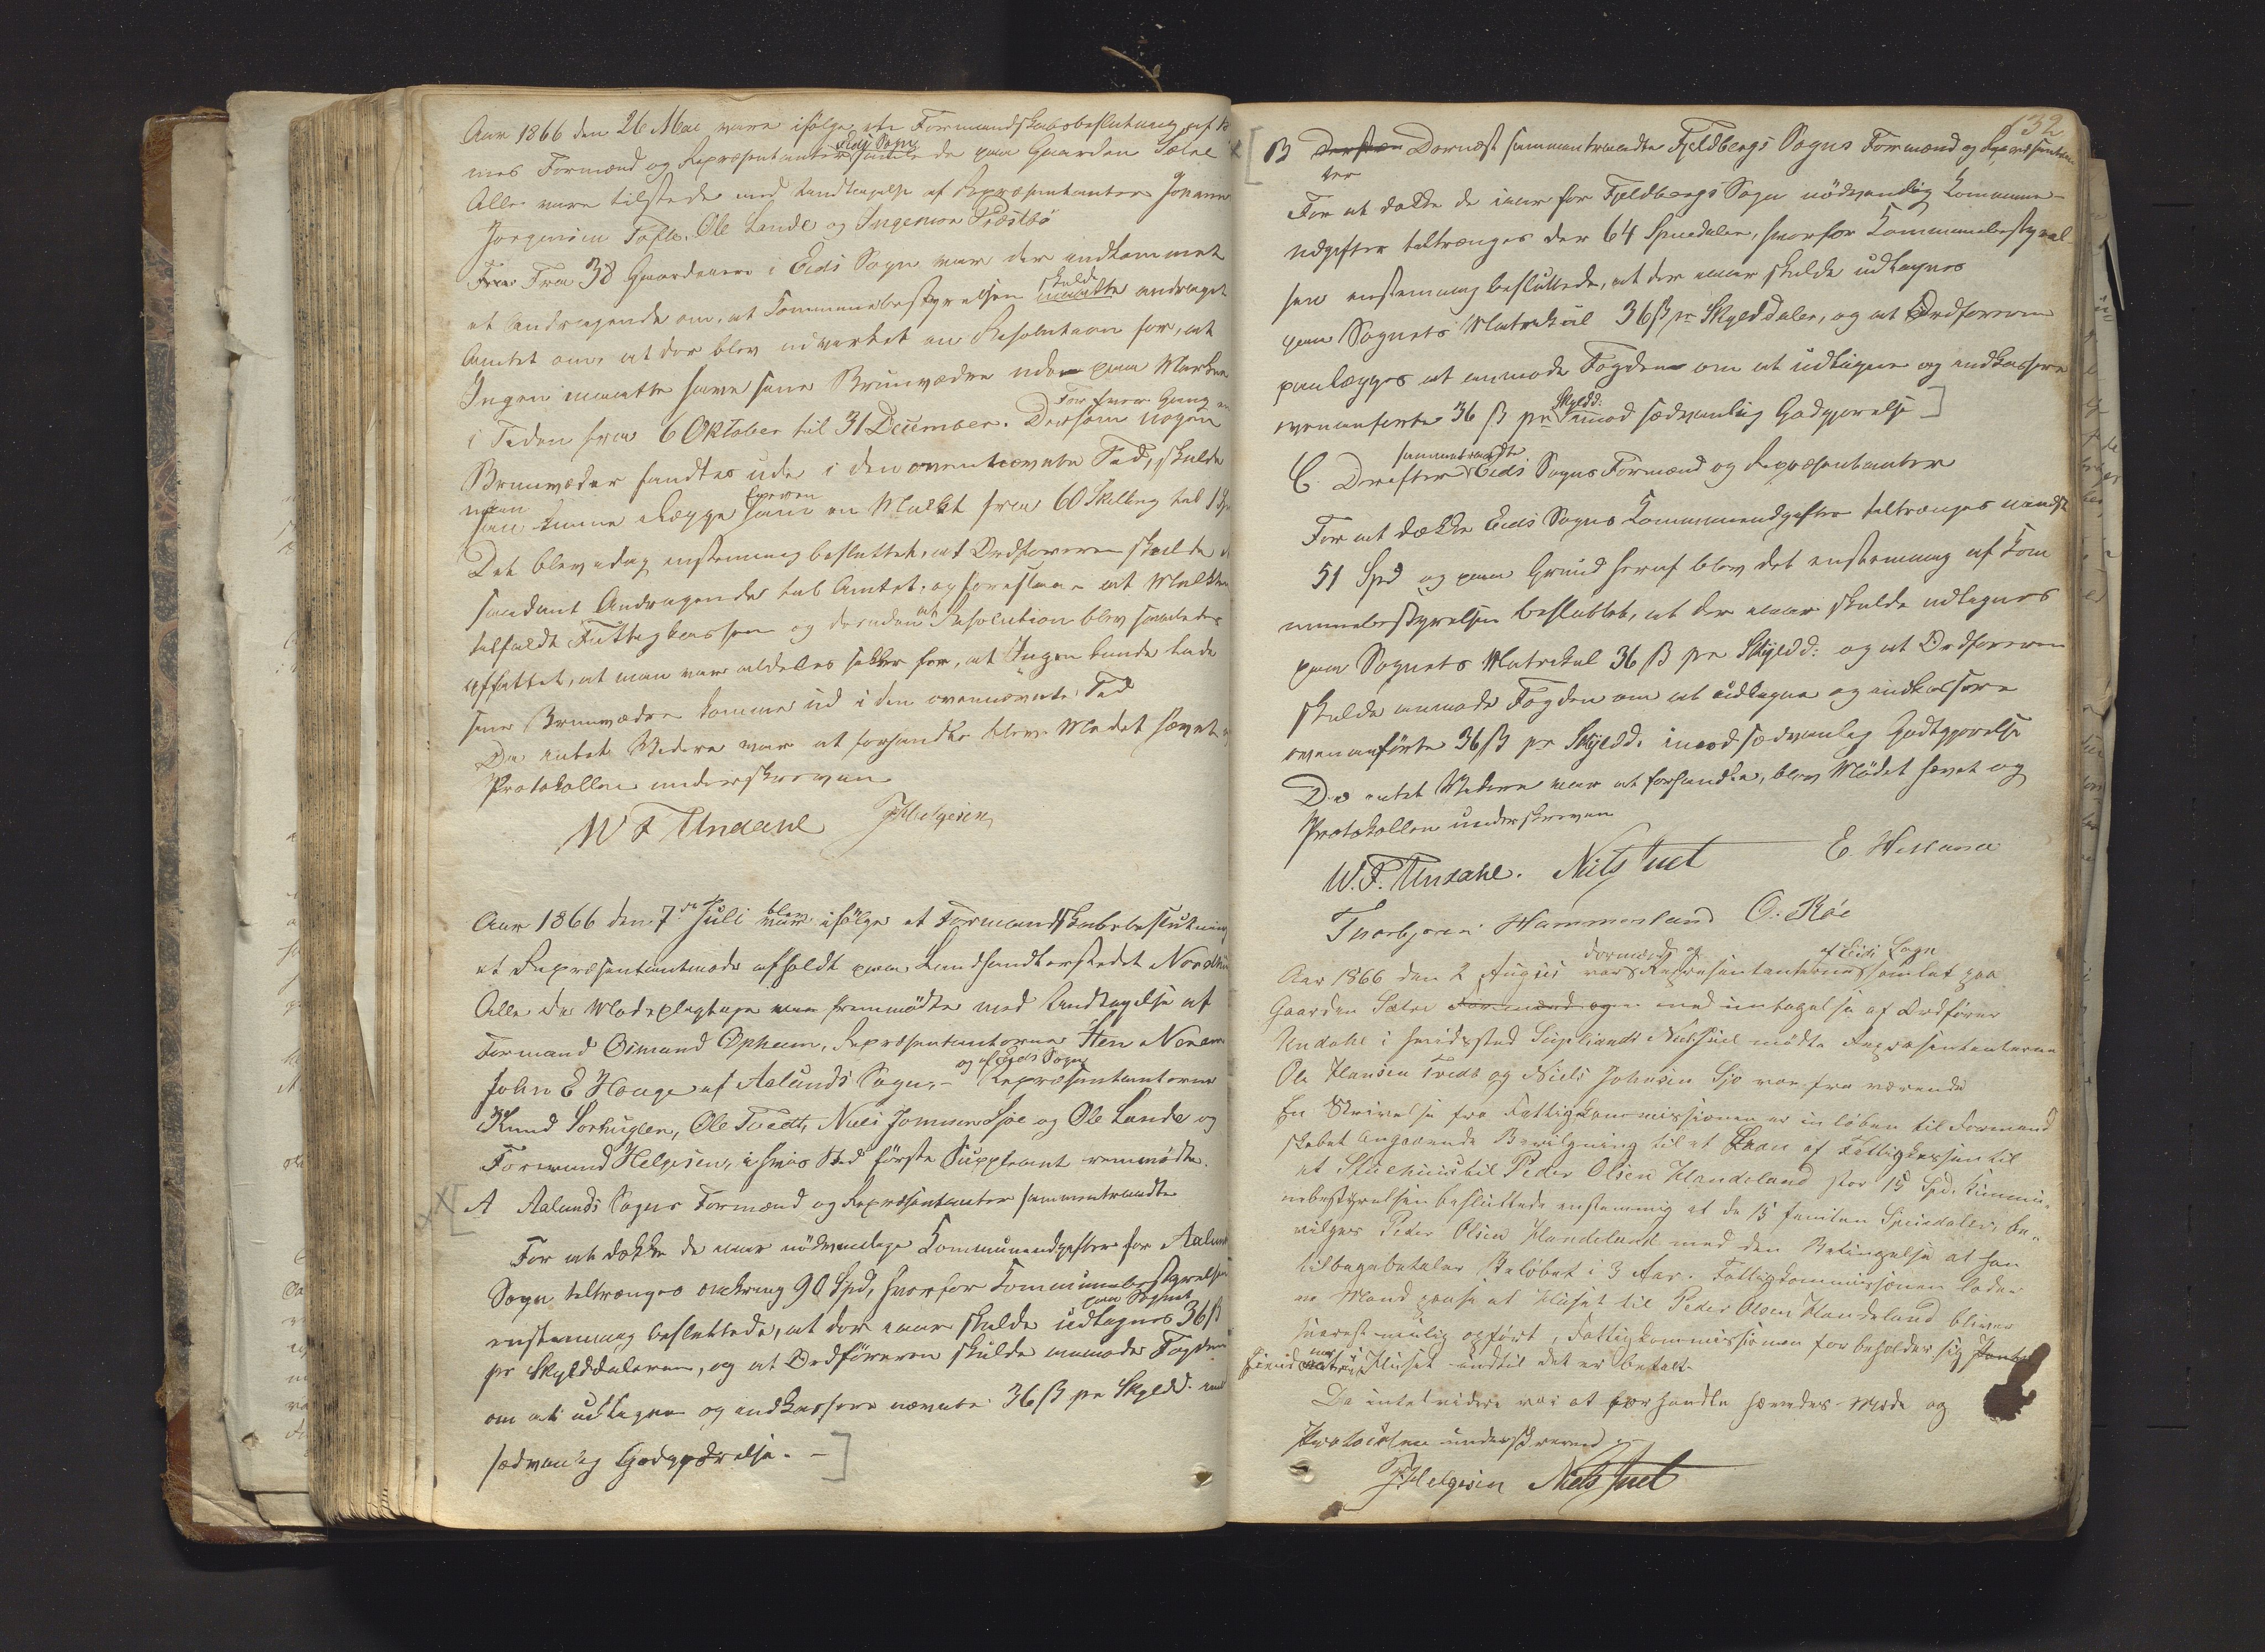 Aar 1866 den 26 Mai vare ifølge et Formandskabsbeslutning af
nes Formænd og Repræsentanter Eids Sogn samlede paa Gaarden Sæle
Alle vare tilstede med Undtagelse af Repræsentanter
Jørgensen Tofte, Ole Lande og Ingemon Præstbø
Fra 38 Gaardeiere i Eids Sogn var der indkommet
et Andragende om, at Kommunebestyrelsen skulde andraget
Amtet om, at der blev udvirket en Resolution for, at
Ingen maatte have sine Brunvædre ude paa Marken
i Tiden fra 6 Oktober til 31 December. Dersom nogen For hver Gang en
Brunvæder fandtes ude i den ovennævnte Tid, skulde
kunne lægge Eieren en Mulkt fra 60 Skilling til 1
Det blev idag enstemmig besluttet, at Ordføreren skulde
saadant Andragende til Amtet, og foreslaa at Mulkten
tilfaldt Fattigkassen og desuden at Resolution blev saaledes
affattet, at man var aldeles sikker for, at Ingen kunde lade
sine Brunvædre komme ud i den ovennævnte Tid
Da intet Videre var at forhandle blev Mødet hævet
Protokollen underskreven
W F Undahl Helgesen
Aar 1866 den 7de Juli blev ifølge et Formandskabsbeslutning
et Repræsentantmøde afholdt paa Landhandlerstedet
Alle de Mødepligtige fremmødte med Undtagelse af
Formand Osmund Opheim, Repræsentanterne Sten
John E Hauge af Aalunds Sogn, - og af Eids Sogn Repræsentanterne
Knud Sørhuglen, Ole Tvedt, Niels Johnsen Sjoe og Ole Lande og
Formand Helgesen, i hvis Sted første Suppleant mødte.
A Aalunds Sogns Formænd og Repræsentanter sammentraadte
For at dække de iaar nødvendige Kommuneudgifter for Aalund
Sogn tiltrænges omkring 90 Spd, hvorfor Kommunebestyrelsen
enstemmig besluttede, at der iaar skulde udlignes paa Sognet 36 ß
pr Skylddaleren, og at Ordføreren skulde anmode Fogden
om at udligne og indkassere nævnte 36 ß pr Skyldd. mod
sædvanlig Godtgjørelse. -
132
B Dernæst sammentraadte Fjeldbergs Sogns Formænd og Repræsentan
ter
For at dække de iaar for Fjeldbergs Sogn nødvendig Kommune-
udgifter tiltrænges der 64 Speciedaler, hvorfor Kommunebestyrel
sen enstemmig besluttede, at der iaar skulde udlignes
paa Sognets Matrikul 36 ß pr Skylddaler, og at Ordføreren
paalægges at anmode Fogden om at udligne og indkassere
ovenanførte 36 ß pr Skyldd: imod sædvanlig Godtgjørelse
C. Derefter sammentraadte Eids Sogns Formænd og Repræsentanter
For at dække Eids Sogns Kommuneudgifter tiltrænges mindst
51 Spd og paa Grund heraf blev det enstemmig af Kom
munebestyrelsen besluttet, at der iaar skulde udlignes
paa Sognets Matrikul 36 ß pr Skyldd: og at Ordføreren
skulde anmode Fogden om at udligne og indkassere
ovenanførte 36 ß pr Skyldd. imod sædvanlig Godtgjørelse
Da intet Videre var at forhandle, blev Mødet hævet og
Protokollen underskreven
W. F. Undahl. Niels Juel E.
Thorbjørn Hammerland O. Røe
Aar 1866 den 2 August var Formænd og Repræsentanterne af Eids Sogn samlet paa
Gaarden Sæle Formænd og med undtagelse af Ordfører
Undahl i hvis sted Supliant Niels Juel mødte Repræsentanterne
Ole Hansen Tvedt og Niels Johnsen Sjo var fra værende
En Skrivelse fra Fattigkommissionen er inløben til Formand
skabet angaaende Bevilgning til et Laan af Fattigkassen til
et Stuehuus til Peder Olsen Handeland stor 15 Spd. Kommu-
nebestyrelsen besluttede enstemmig at de 15 femten Speciedaler be-
vilges Peder Olsen Handeland med den Betingelse at han
tilbagebetaler Beløbet i 3 Aar. Fattigkommissionen lader
en Mand paase at Huset til Peder Olsen Handeland bliver
snarest mulig opført, Fattigkommissionen for beholder sig
Huset indtil det er betalt.
Da intet videre var at forhandle hævedes Møde og
Protocollen underskreved
Helgesen Niels Juel